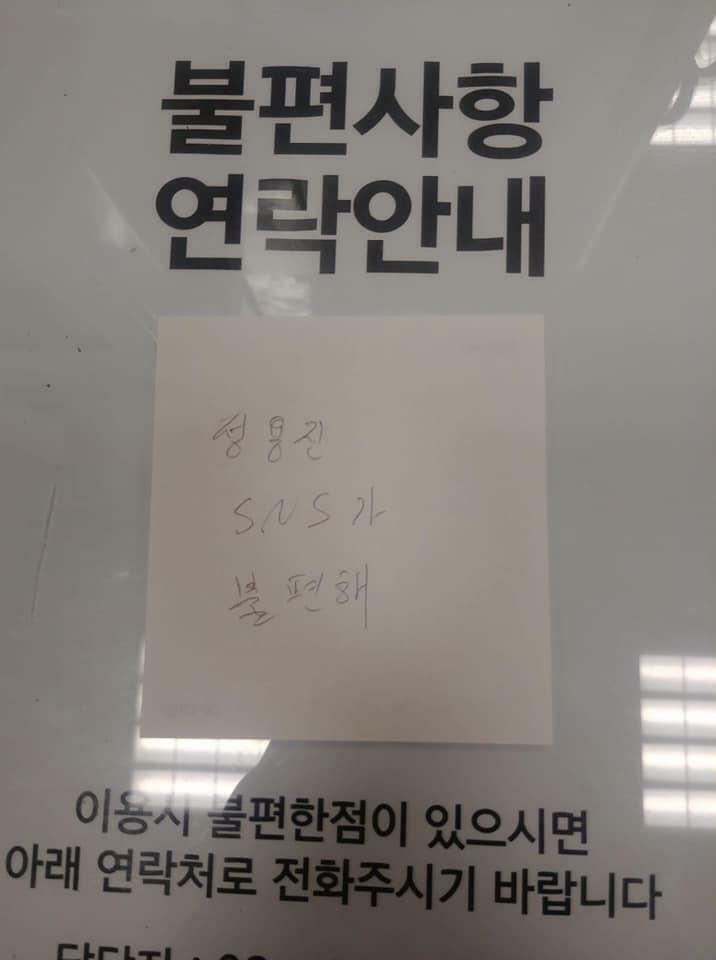 불편사항
연락안내
정용진
SNS가
불편해
이용시 불편한점이 있으시면
아래 연락처로 전화주시기 바랍니다